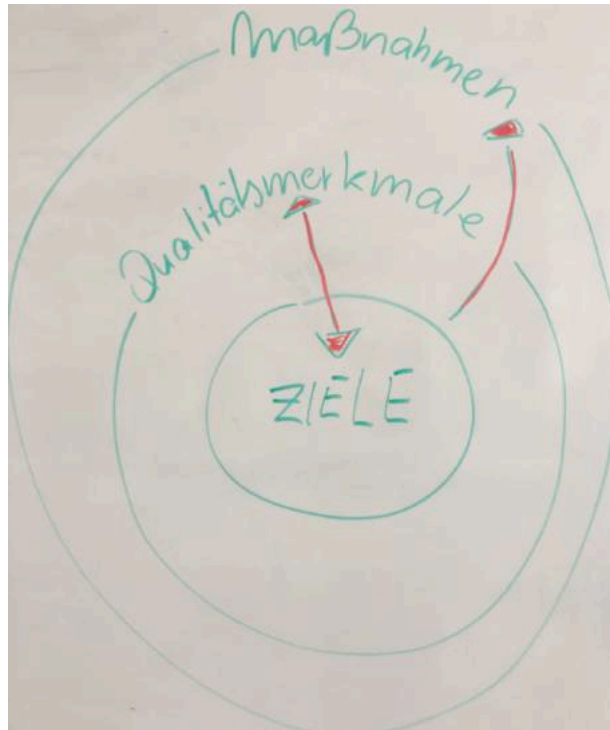 Maßnahmen
Qualitätsmerkmale
ZIELE